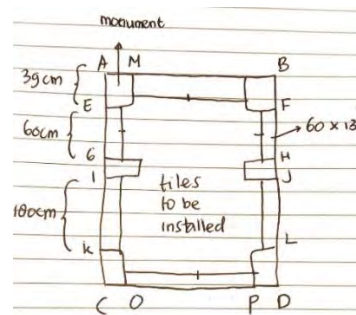 monument
A M B
39cm
E F
60cm
60 x 13
G H
I J
tiles
to be
installed
180cm
K L
C O P D